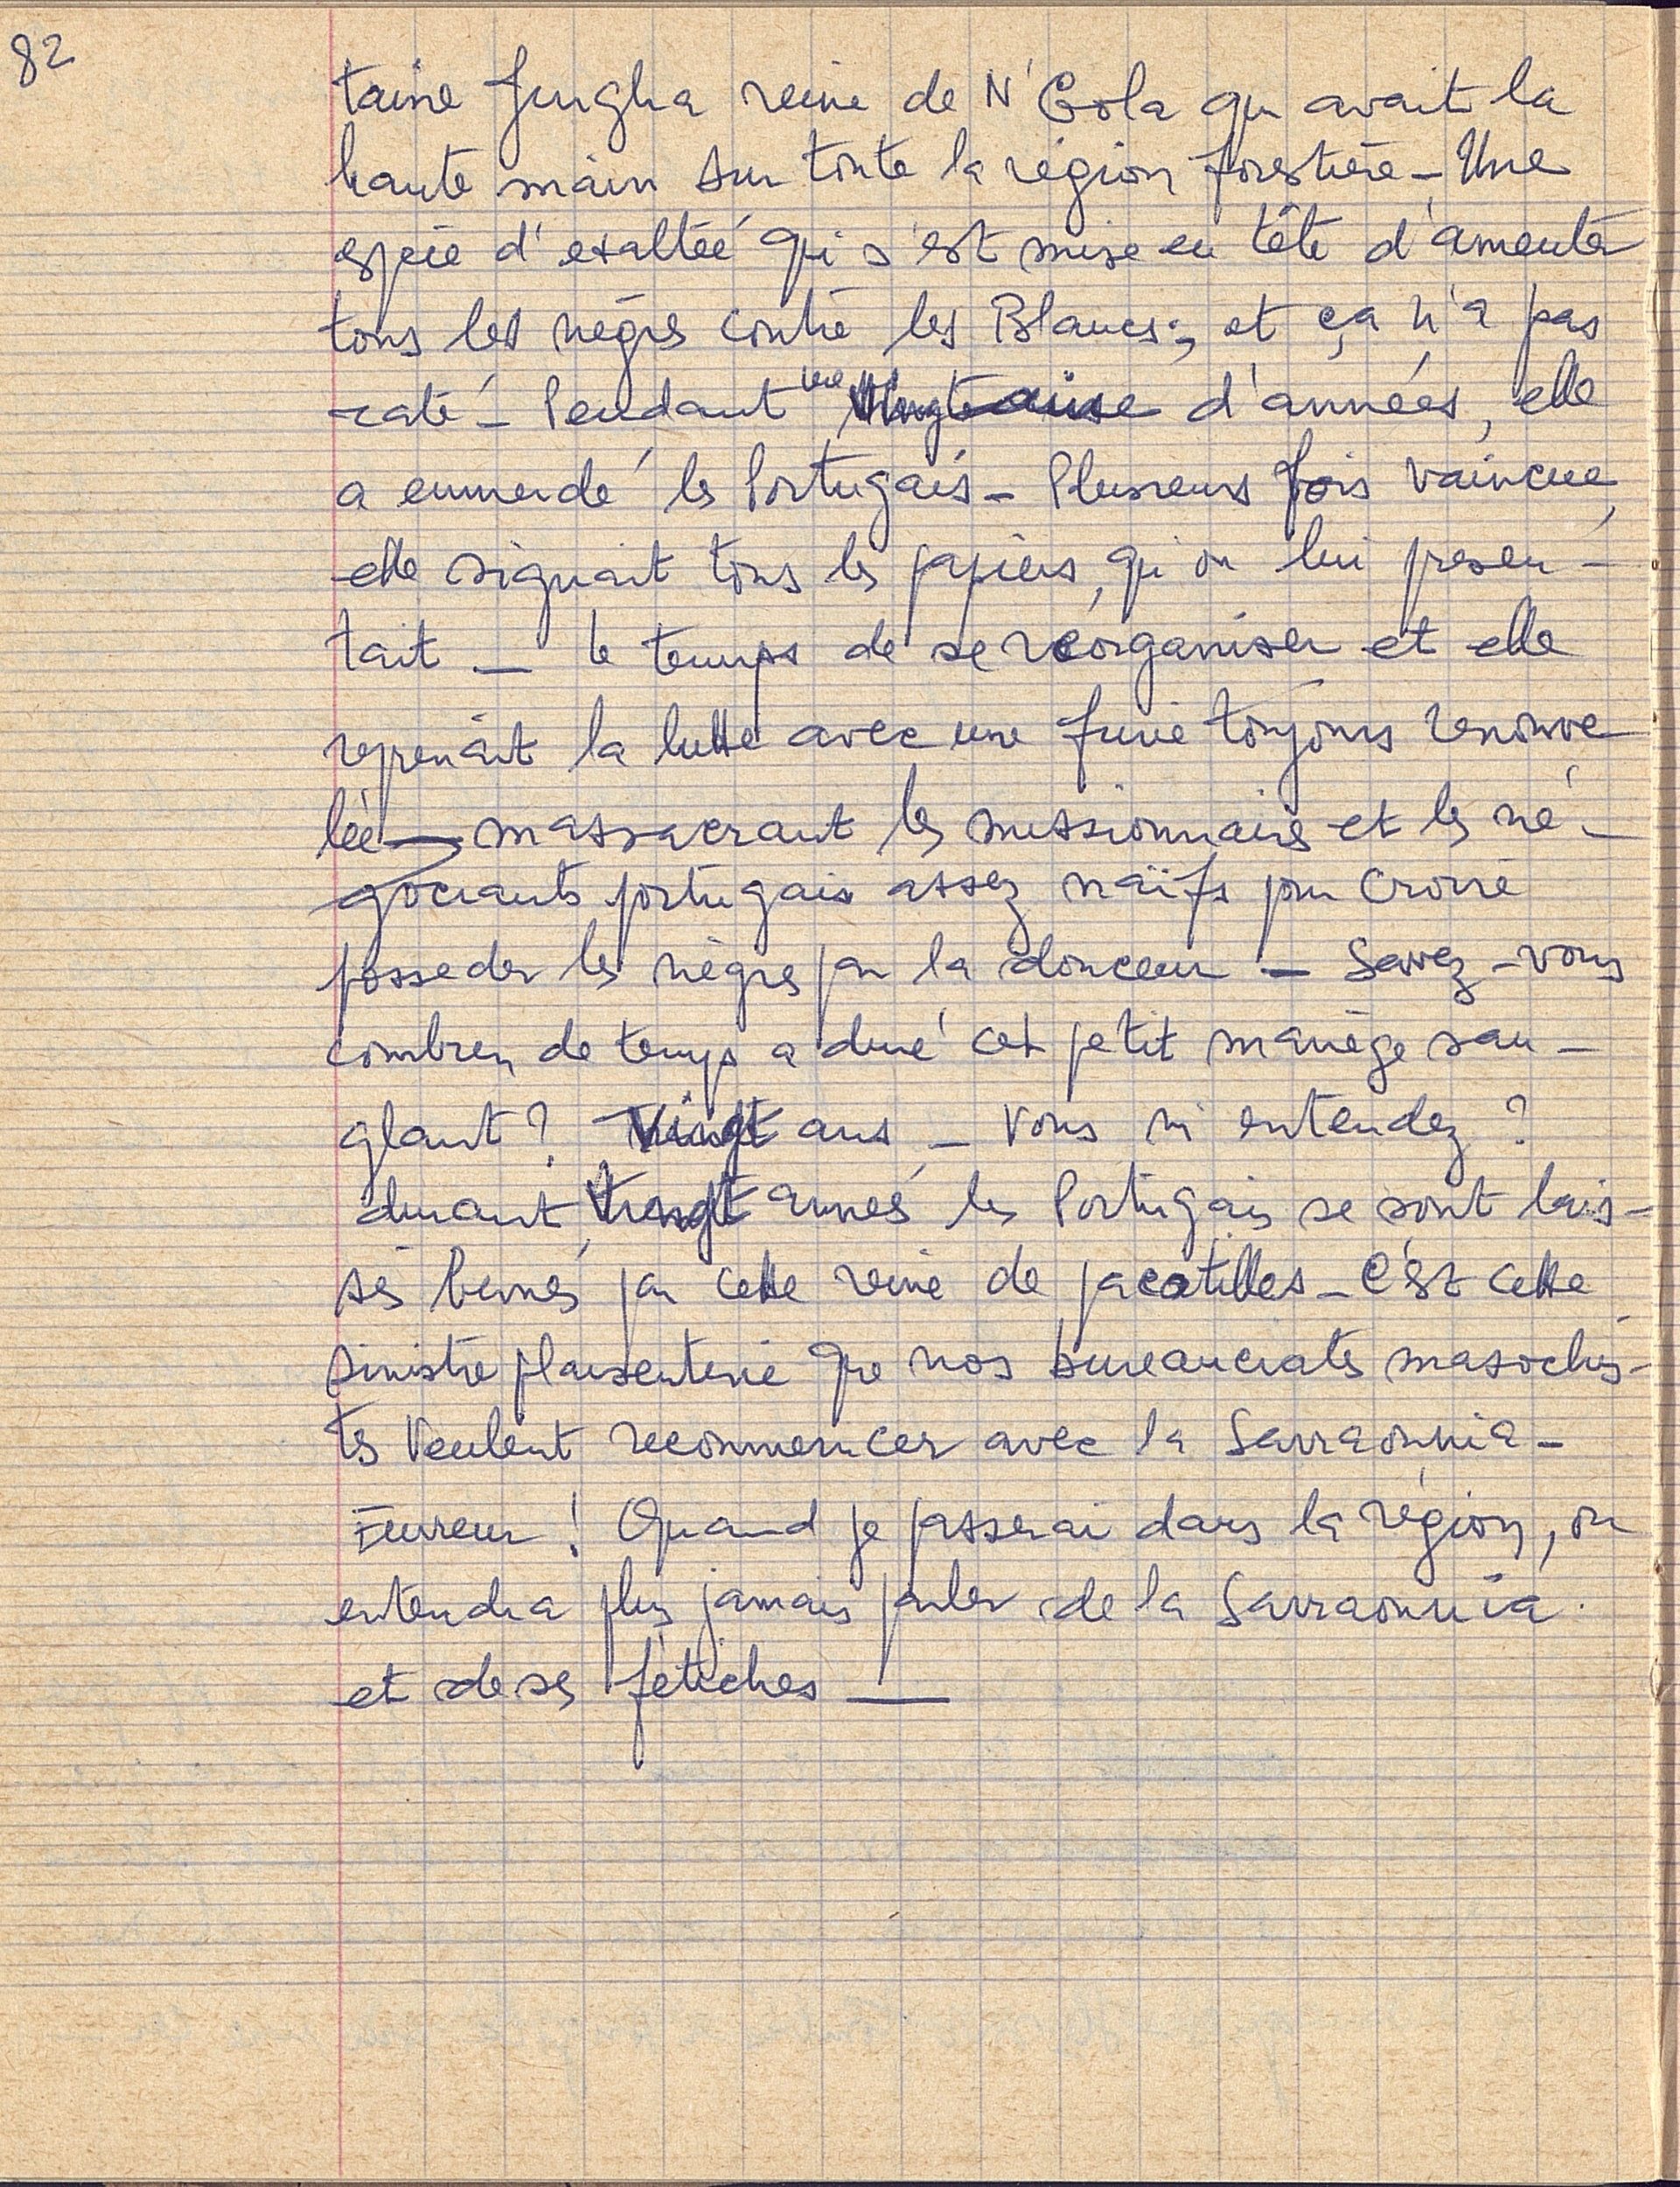 82
taine Jungha reine de N'Gola qui avait la
haute main sur toute la région forestière - Une
espèce d'exaltée qui s'est mise en tête d'ameuter
tous les nègres contre les Blancs ; et ça n'a pas
raté - Pendant une vingtaine d'années, elle
a emmerdé les Portugais - Plusieurs fois vaincue,
elle signait tous les papiers, qu'on lui présen-
tait - le temps de se réorganiser et elle
reprenait la lutte avec une furie toujours renouve
lée - massacrant les missionnaires et les né-
gociants portugais assez naïfs pour croire
posseder les nègres par la douceur - Savez-vous
combien de temps a duré cet petit manège san-
glant ? Vingt ans - Vous m'entendez ?
durant vingt années les Portugais se sont lais-
sés bernés par cette reine de pacotilles - C'est cette
sinistre plaisenterie que nos bureaucrates masochis-
tes veulent recommencer avec la Sarraounia -
Eurreur ! Quand je passerai dans la région, on
entendra plus jamais parler de la Sarraounia.
et de ses fétiches —